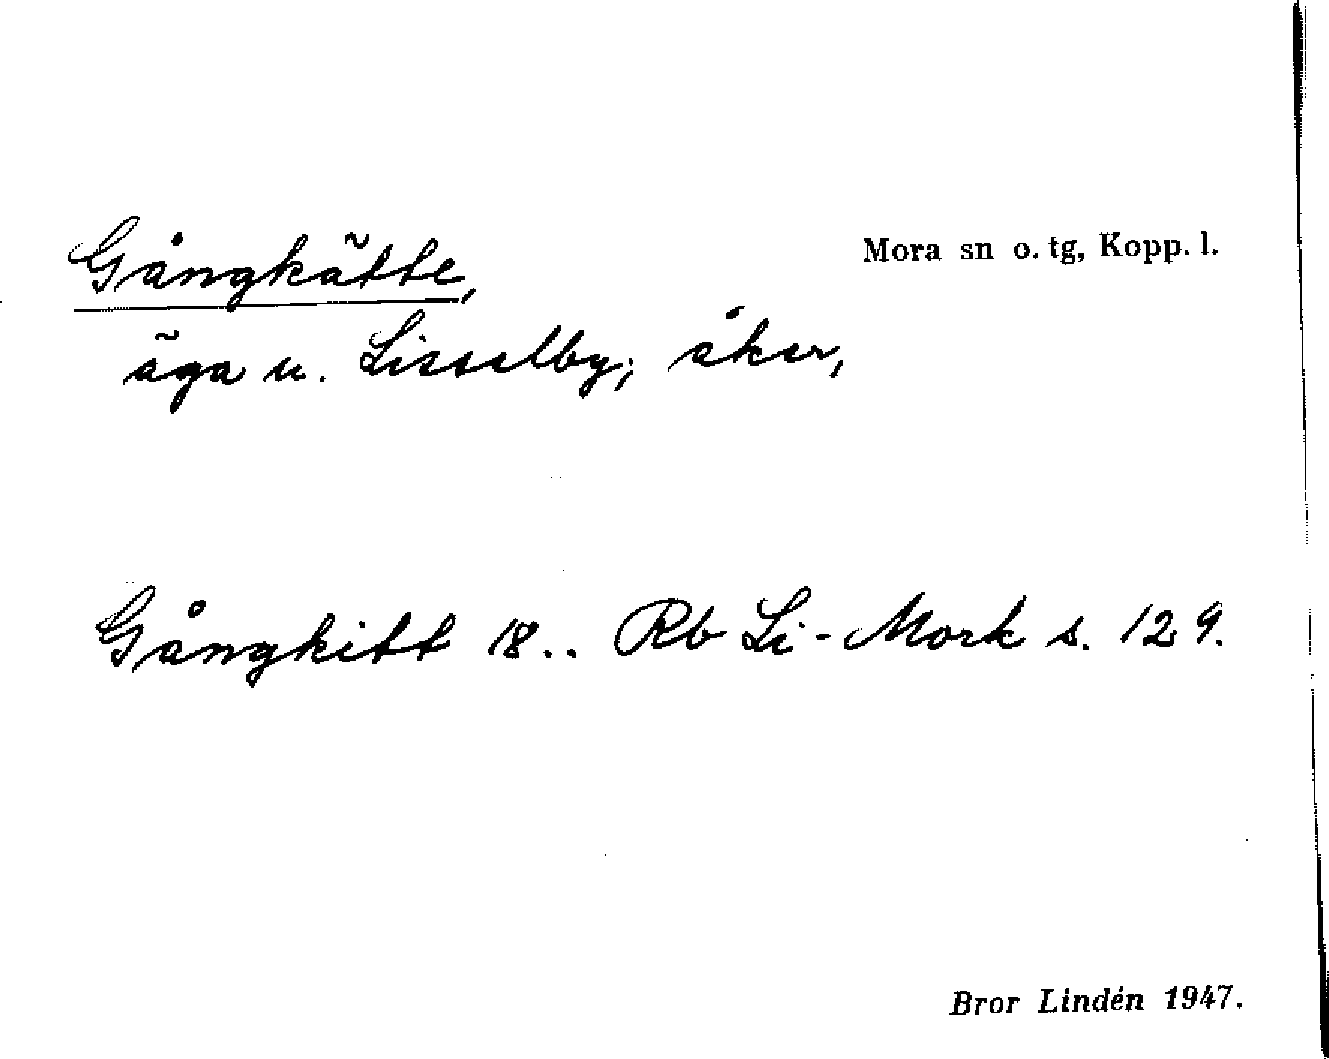 Gångkätte,
Mora sn o. tg, Kopp. l.
äga u. Lisselby; åker,
Gångkitt 18.. Rb Li-Mork s. 129.
Bror Lindén 1947.